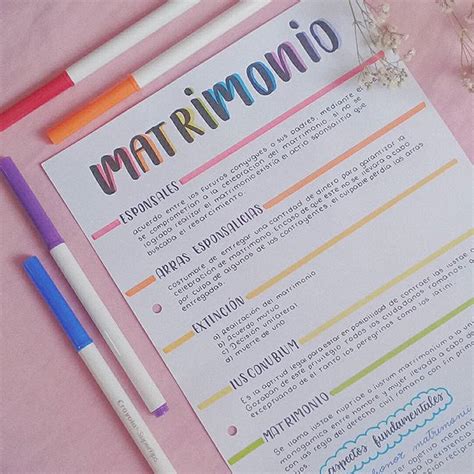 MATRIMONIO
ESPONSALES
acuerdo entre los futuros conyugues o sus padres, mediante el
se comprometian a la celebración del matrimonio, si no se
lograba realizar el matrimonio existía el actio sponsalitia que
buscaba el resarcimiento.
ARRAS ESPONSALICIAS
costumbre de entregar una cantidad de dinero para garantizar la
celebración de matrimonio. En caso de que este no se llevara a cabo
por culpa de algunos de los contrayentes, el culpable perdía las arras
entregadas.
EXTINCIÓN
a) Realización del matrimonio
b) Acuerdo mutuo
c) Decisión unilateral
d) muerte de uno
IUS CONUBIUM
Es la aptitud legal para estar en posibilidad de contraer las justae
Gozaban de este privilegio. Todos los ciudadanos romanos,
exceptuando de el tanto los peregrinos como los latini
MATRIMONIO
Se llama iustae nuptiae o iustum matrimonium a la
monogamica entre hombre y mujer llevada a cabo de
las reglas del derecho civil romano con fin
aspectos fundamentales
honor matrimon
objetivo mediante